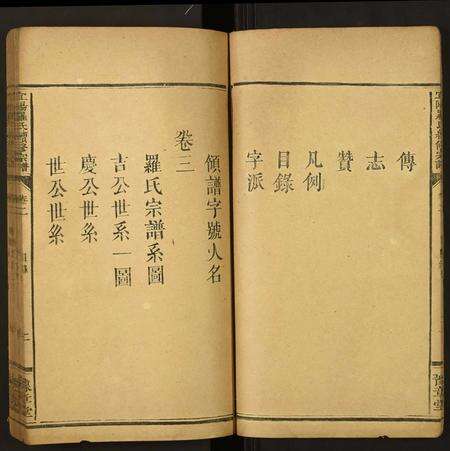 傳
志
贊
凡例
目錄
字派
領譜字號人名
卷三
羅氏宗譜系圖
吉公世系一圖
慶公世系
世公世系
豫章堂
豫章堂